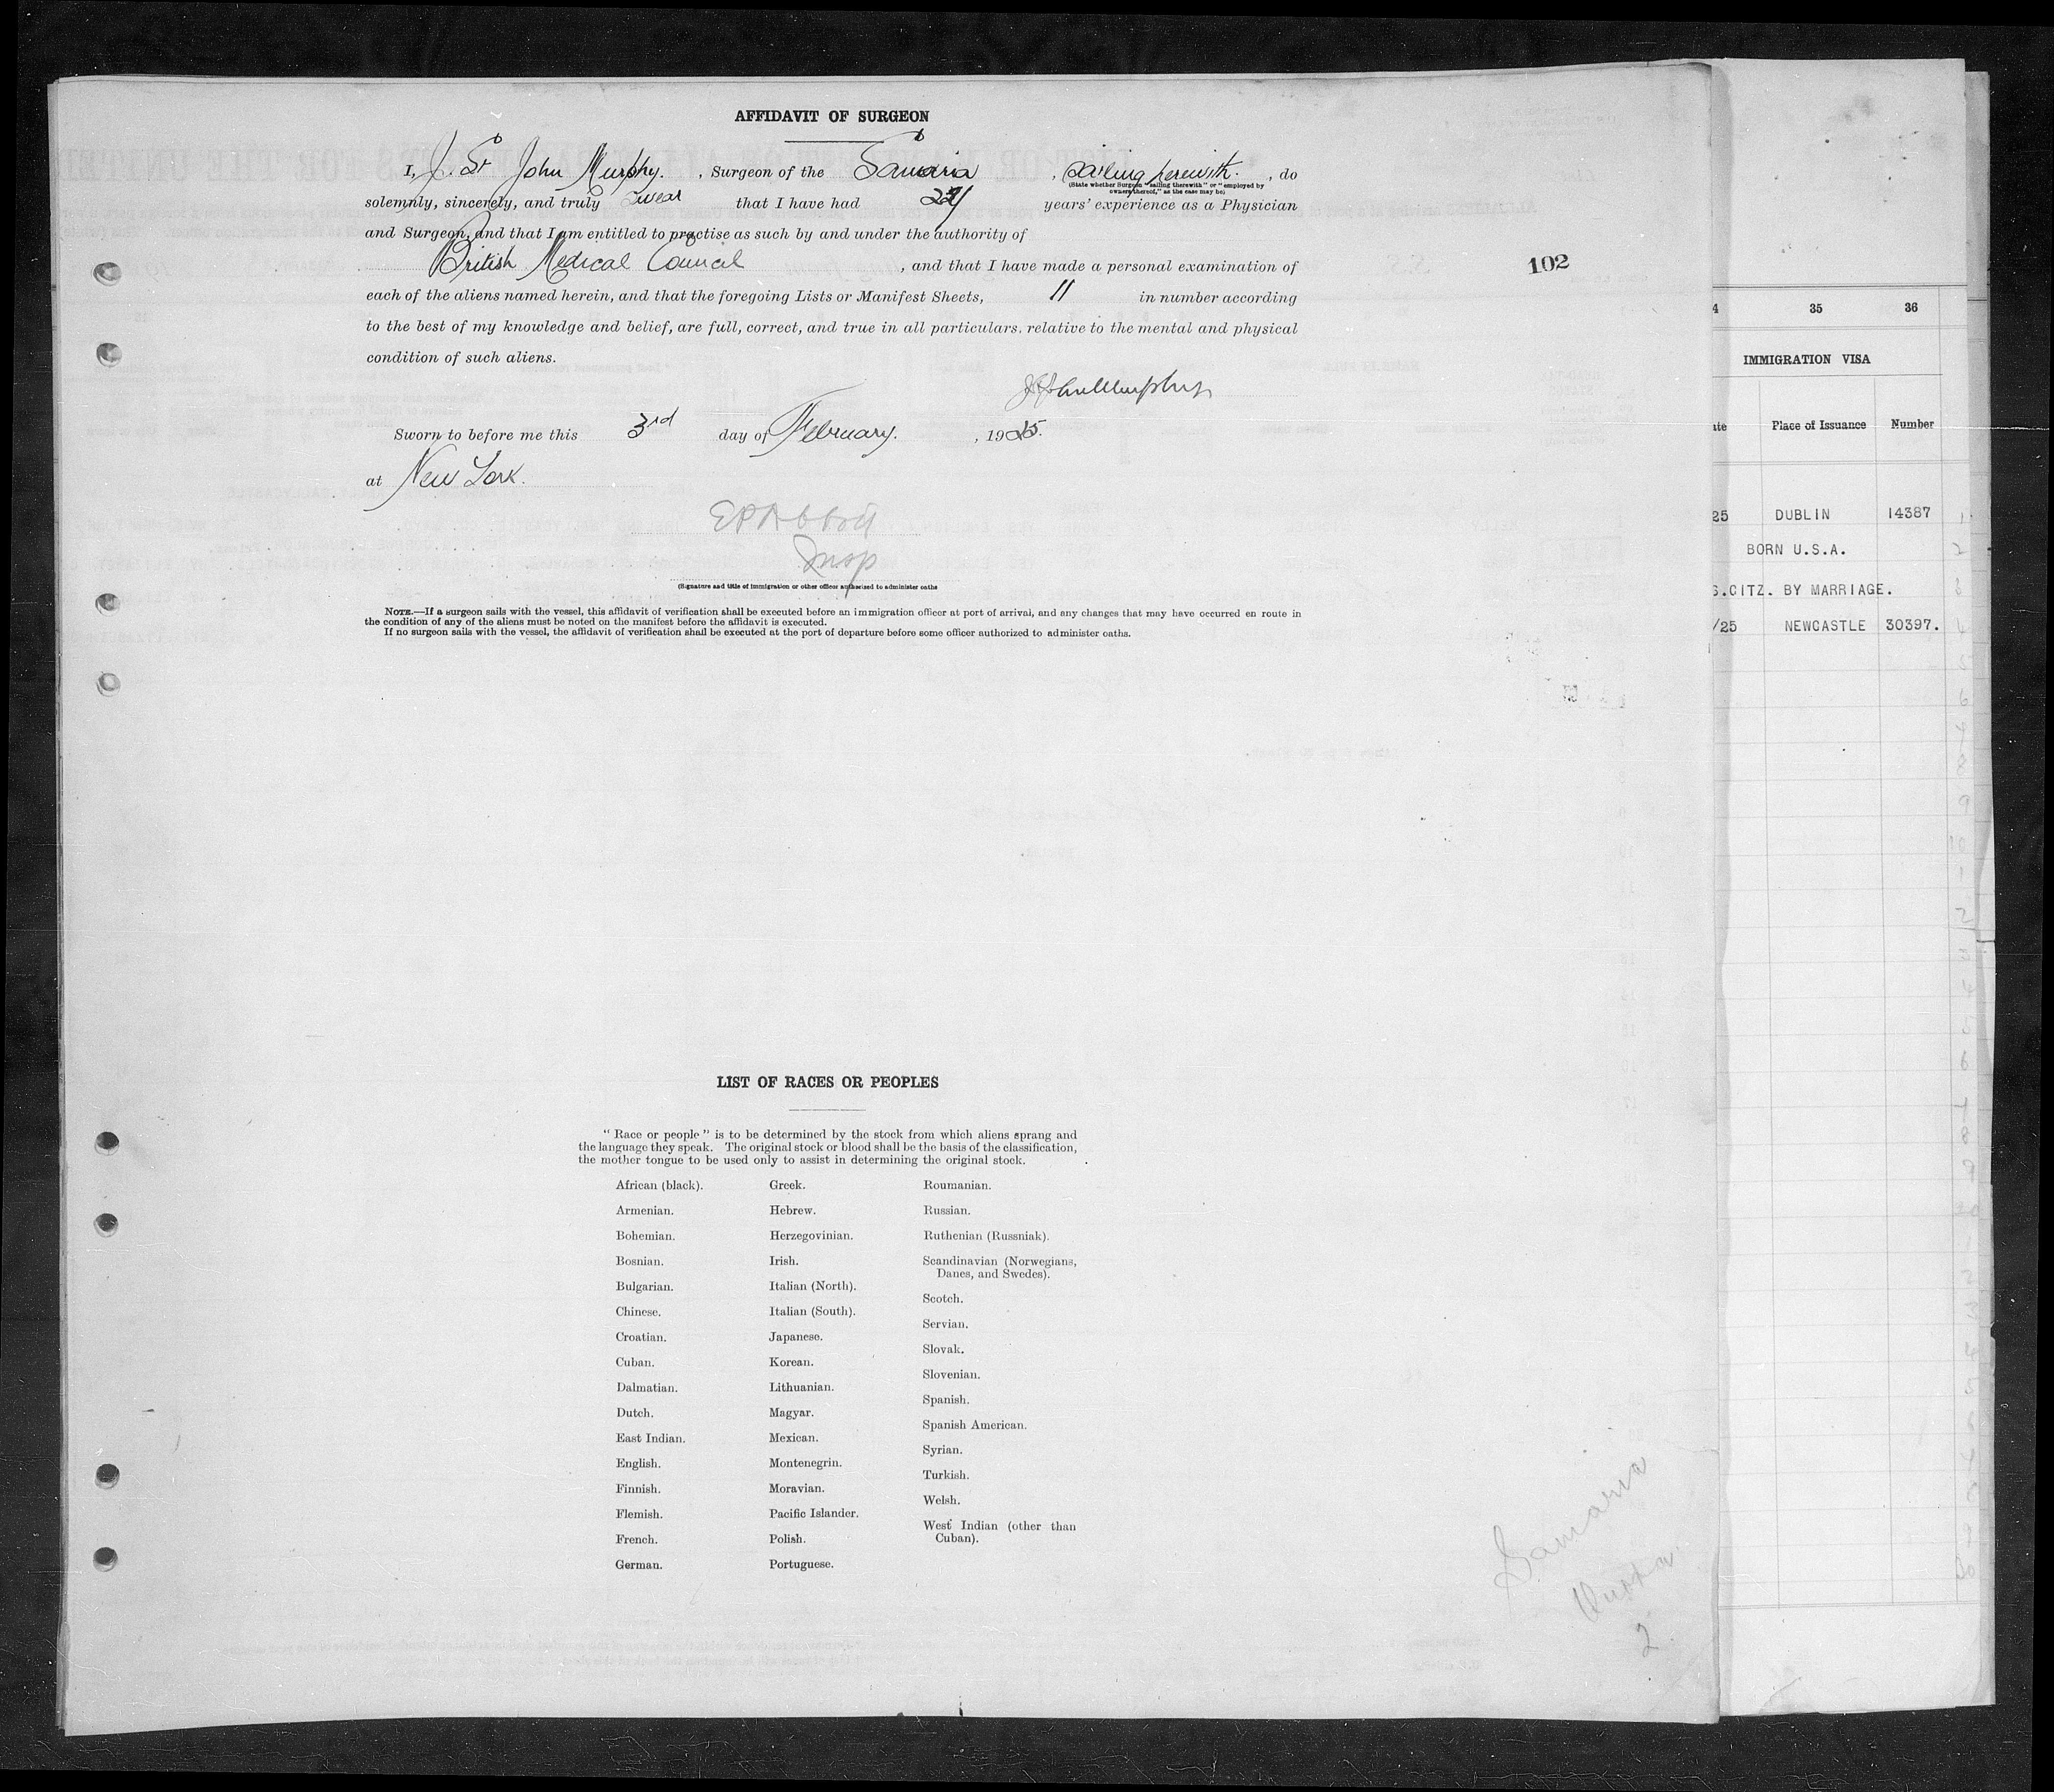 AFFIDAVIT OF SURGEON
I, J. St John Murphy. , Surgeon of the Samaria , sailing herewith. , do
(State whether Surgeon "sailing therewith" or "employed by
owners thereof," as the case may be)
solemnly, sincerely, and truly swear that I have had years' experience as a Physician
and Surgeon, and that I am entitled to practise as such by and under the authority of
British Medical Council , and that I have made a personal examination of
102
each of the aliens named herein, and that the foregoing Lists or Manifest Sheets, 11 in number according
to the best of my knowledge and belief, are full, correct, and true in all particulars. relative to the mental and physical
condition of such aliens.
Sworn to before me this 3rd day of February. , 1925.
at New York.
E P Abbott
Insp
(Signature and title of immigration or other officer authorised to administer oaths
NOTE.—If a surgeon sails with the vessel, this affidavit of verification shall be executed before an immigration officer at port of arrival, and any changes that may have occurred en route in
the condition of any of the aliens must be noted on the manifest before the affidavit is executed.
If no surgeon sails with the vessel, the affidavit of verification shall be executed at the port of departure before some officer authorized to administer oaths.
LIST OF RACES OR PEOPLES
"Race or people" is to be determined by the stock from which aliens sprang and
the language they speak. The original stock or blood shall be the basis of the classification,
the mother tongue to be used only to assist in determining the original stock.
African (black).
Armenian.
Bohemian.
Bosnian.
Bulgarian.
Chinese.
Croatian.
Cuban.
Dalmatian.
Dutch.
East Indian.
English.
Finnish.
Flemish.
French.
German.
Greek.
Hebrew.
Herzegovinian.
Irish.
Italian (North).
Italian (South).
Japanese.
Korean.
Lithuanian.
Magyar.
Mexican.
Montenegrin.
Moravian.
Pacific Islander.
Polish.
Portuguese.
Roumanian.
Russian.
Ruthenian (Russniak).
Scandinavian (Norwegians,
Danes, and Swedes).
Scotch.
Servian.
Slovak.
Slovenian.
Spanish.
Spanish American.
Syrian.
Turkish.
Welsh.
West Indian (other than
Cuban).
Samaria
2
4 35 36
IMMIGRATION VISA
Place of Issuance Number
25 DUBLIN 14387
BORN U.S.A.
S.CITZ. BY MARRIAGE.
/25 NEWCASTLE 30397.